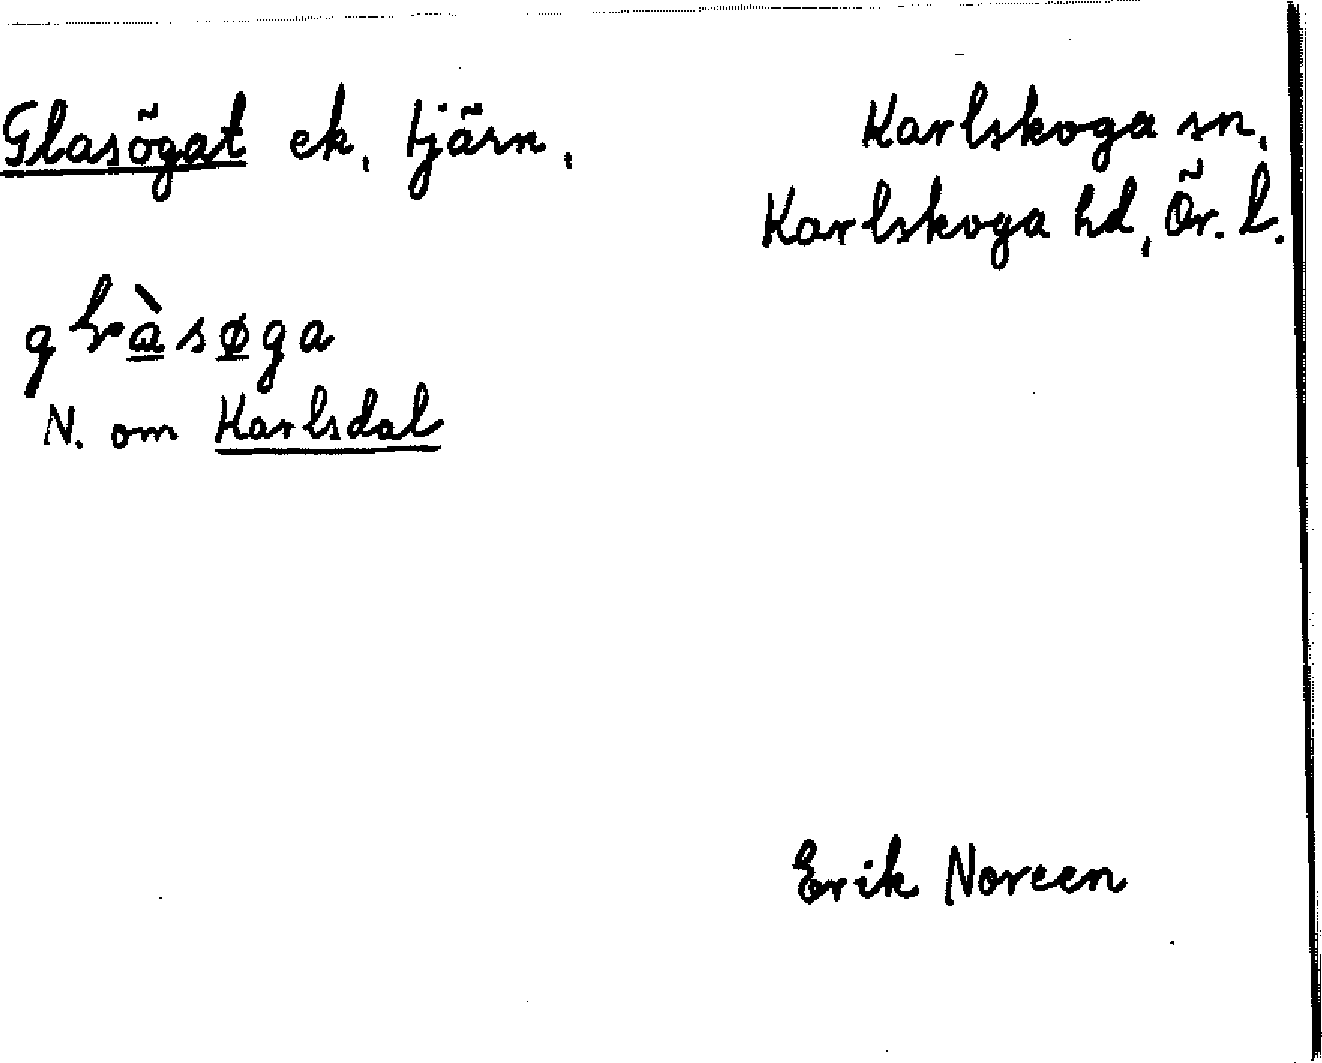 Glasögat ek, tjärn,
Karlskoga sn,
Karlskoga hd, Ör. L.
glàsøga
N. om Karlsdal
Erik Noreen